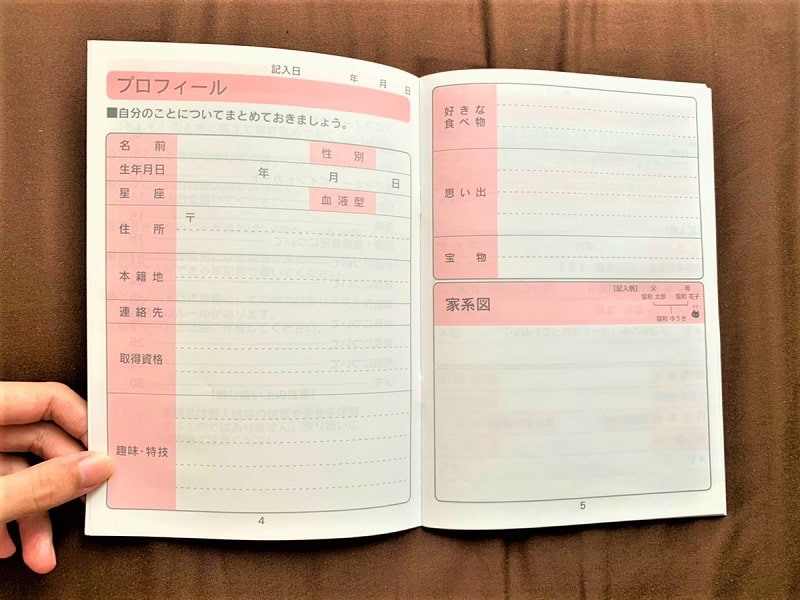 記入日 年 月 日
プロフィール
■自分のことについてまとめておきましょう。
名 前 性 別
生年月日 年 月 日
星 座 血液型
住 所 〒
本籍地
連絡先
取得資格
趣味・特技
4
好きな
食べ物
思い出
宝 物
家系図
【記入例】 父 母
協和 太郎 協和 花子
協和 ゆうき
5